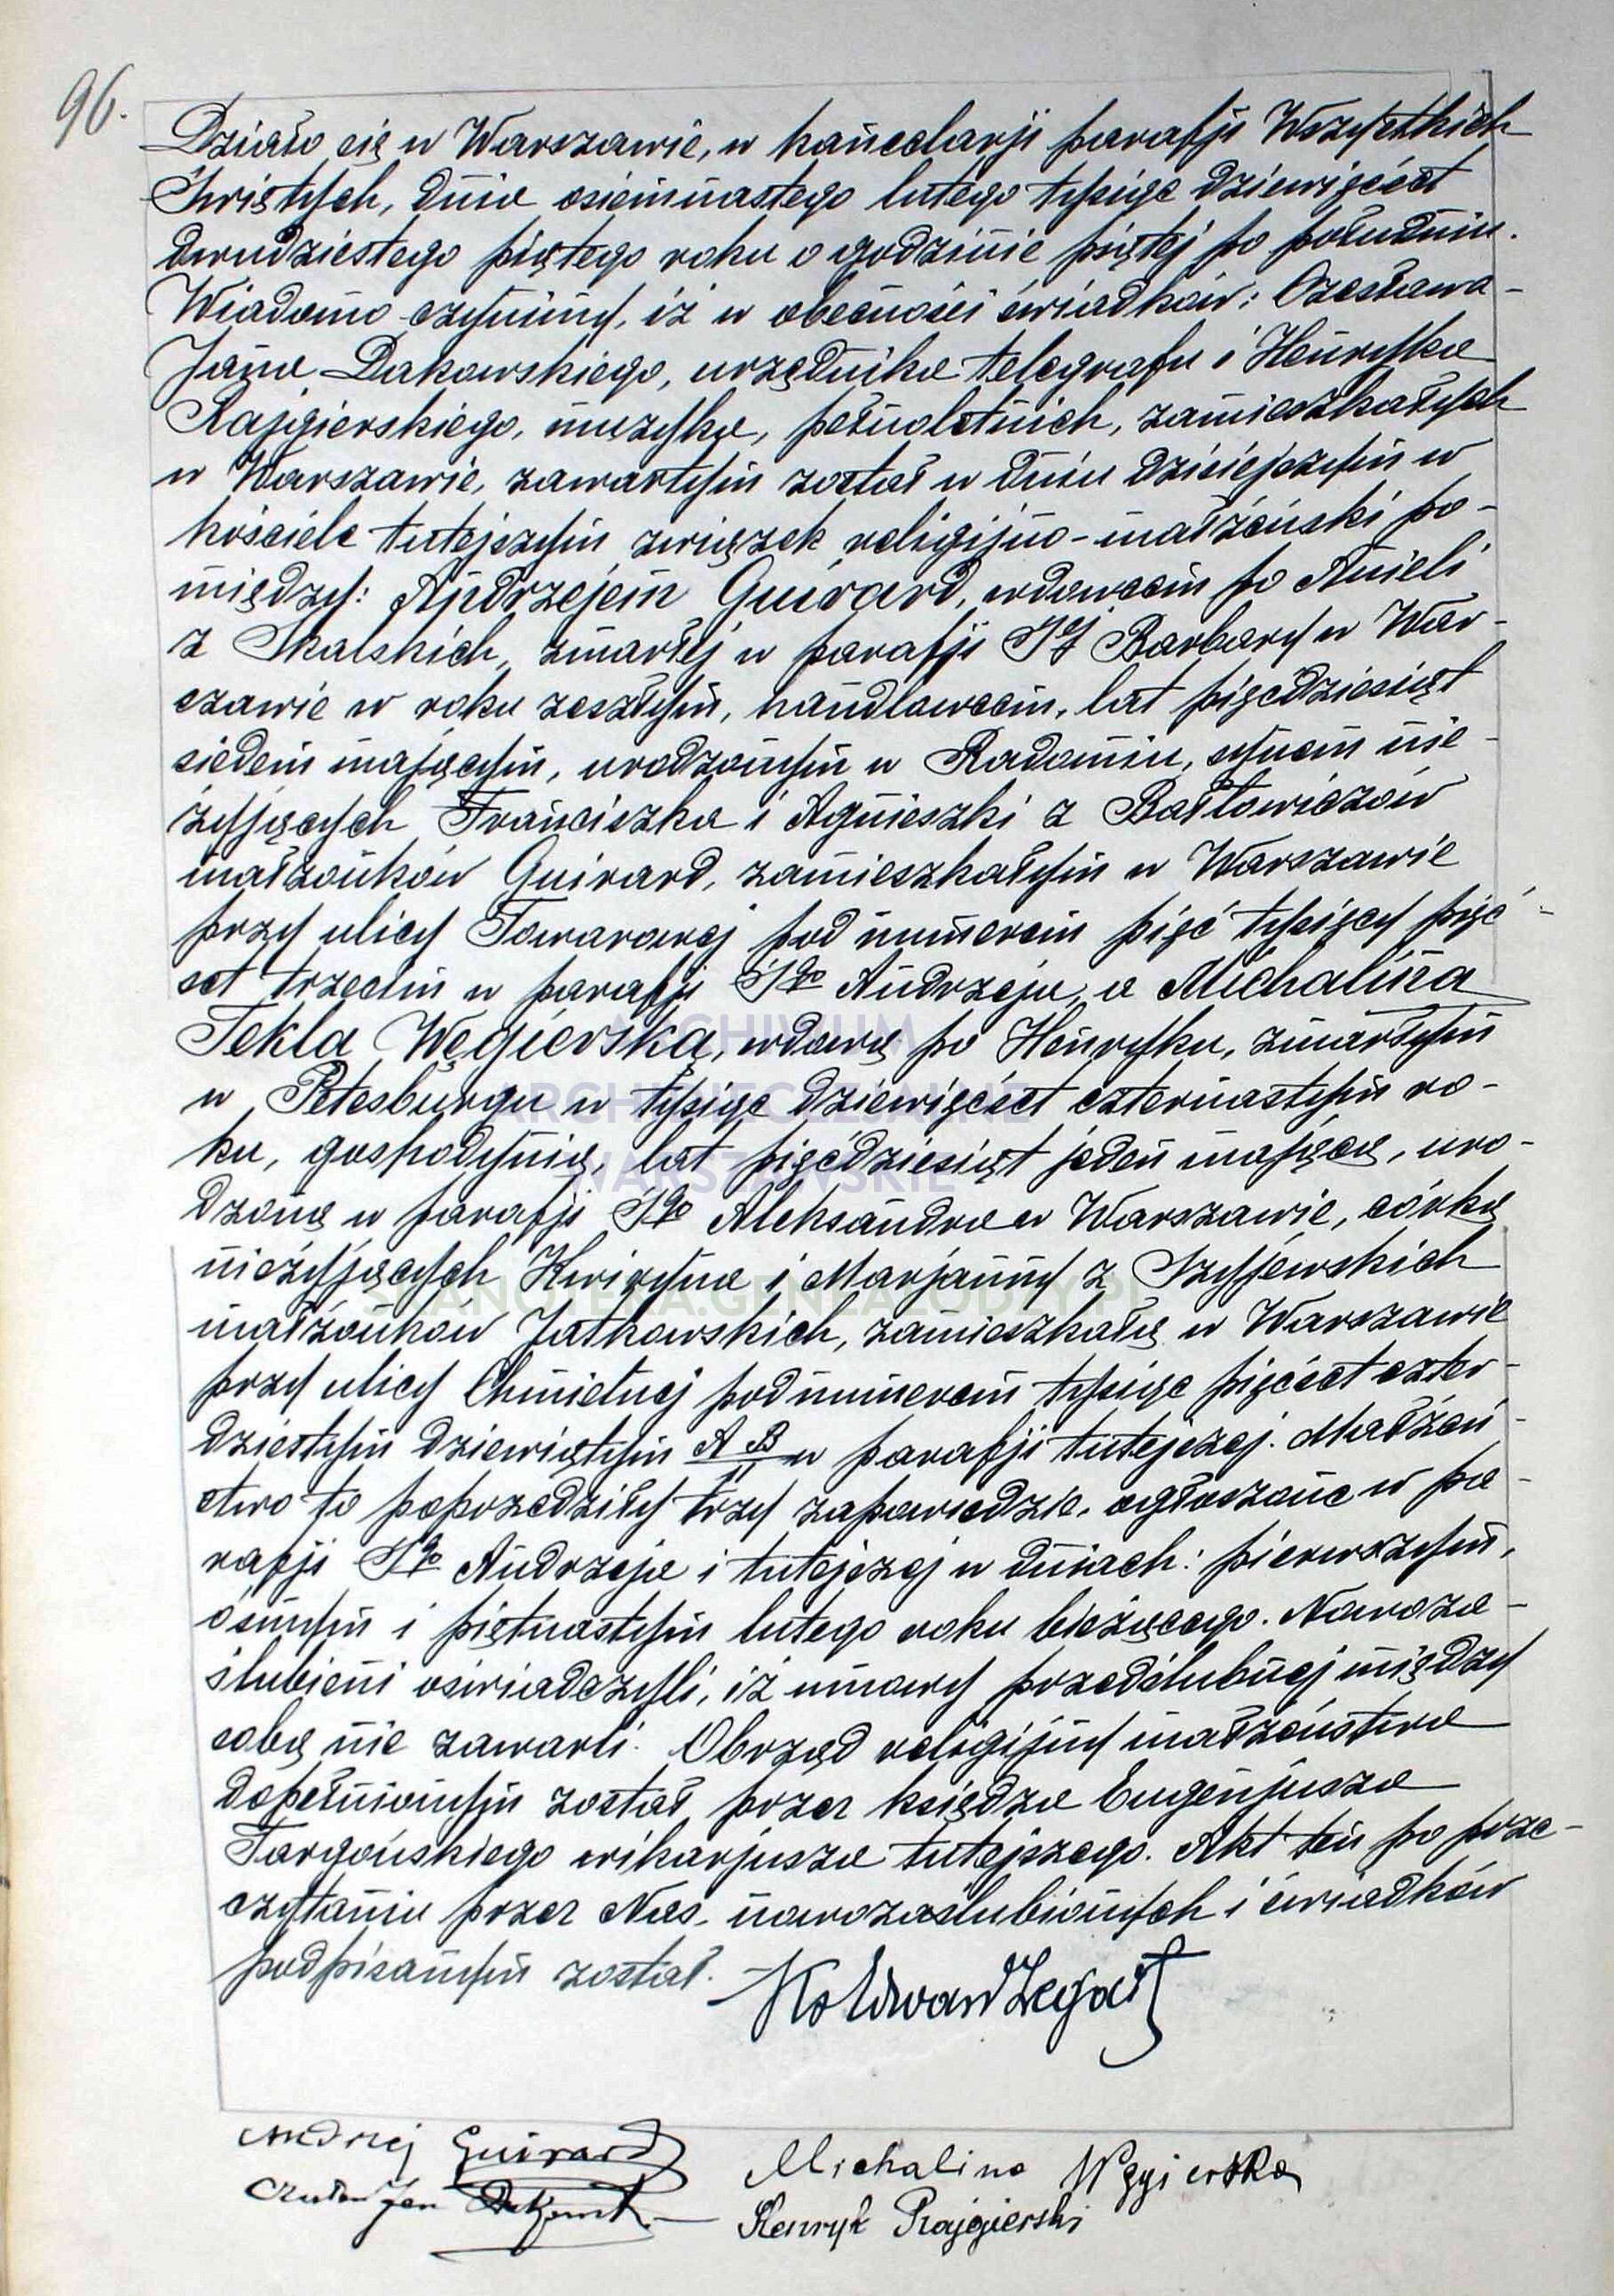 96.
Działo się w Warszawie, w kancelarji parafji Wszystkich
Świętych, dnia osiemnastego lutego tysiąc dziewięćset
dwudziestego piątego roku o godzinie piątej po południu.
Wiadomo czynimy, iż w obecności świadków: Czesława-
Jana Dakowskiego, urzędnika telegrafu i Henryka
Rajgierskiego, muzyka, pełnoletnich, zamieszkałych
w Warszawie, zawartym został w dniu dzisiejszym w
kościele tutejszym związek religijno-małżeński po-
między: Andrzejem Guirard, wdowcem po Anieli
z Skalskich, zmarłej w parafji Ś-ej Barbary w War-
szawie w roku zeszłym, handlowcem, lat pięćdziesiąt
siedem mającym, urodzonym w Radomiu, synem nie-
żyjących Franciszka i Agnieszki z Bałtowiczów
małżonków Guirard, zamieszkałym w Warszawie
przy ulicy Towarowej pod numerem pięć tysięcy pięć-
set trzecim w parafji Ś-go Andrzeja, a Michaliną
Teklą Węgierską, wdową po Henryku, zmarłym
w Petesburgu w tysiąc dziewięćset czternastym ro-
ku, gospodynią, lat pięćdziesiąt jeden mającą, uro-
dzoną w parafji Ś-go Aleksandra w Warszawie, córką
nieżyjących Kwiryna i Marjanny z Szyjewskich
małżonków Jatkowskich, zamieszkałą w Warszawie
przy ulicy Chmielnej pod numerem tysiąc pięćset czter-
dziestym dziewiątym A B w parafji tutejszej. Małżeń-
stwo to poprzedziły trzy zapowiedzie, ogłoszone w pa-
rafji Ś-go Andrzeja i tutejszej w dniach: pierwszym,
ósmym i piętnastym lutego roku bieżącego. Nowoza-
ślubieni oświadczyli, iż umowy przedślubnej między
sobą nie zawarli. Obrząd religijny małżeństwa
dopełnionym został przez księdza Eugenjusza
Targońskiego wikarjusza tutejszego. Akt ten po prze-
czytaniu przez Nas, nowozaślubionych i świadków
podpisanym został.
Andrzej Guirard
Michalina Węgierska
Henryk Rajgierski
ARCHIWUM
ARCHIDIECEZJALNE
WARSZAWSKIE
SKANOTEKA.GENEALODZY.PL